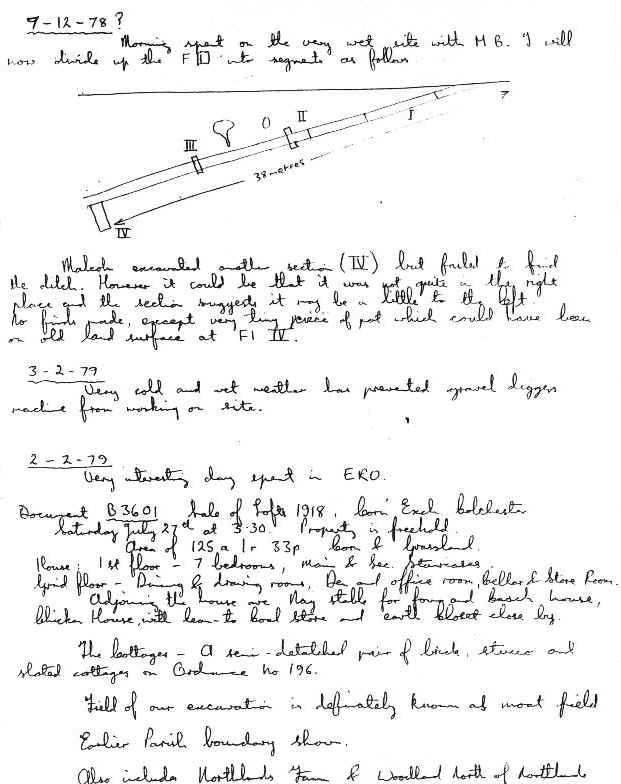 9-12-78?
Morning spent on the very wet site with M B. I will
now divide up the F 1 into segments as follows
?
I
II
III
38 metres
IV
Malcolm excavated another section (IV) but failed to find
the ditch. However it could be that it was not quite in the right
place and the section suggests it may be a little to the left.
No finds made, except very tiny peiece of pot which could have been
on old land surface at F1 IV.
3-2-79
Very cold and wet weather has prevented gravel diggers
machine from working on site.
2-2-79
Very interesting day spent in ERO.
Document B3601 Sale of Lofts 1918, Corn Exch Colchester
Saturday July 27th at 3.30. Property is freehold.
Area of 125a 1r 33p Corn & Grassland.
House: 1st floor - 7 bedrooms, main & Sec. Staircases.
Grnd floor - Dining & drawing rooms, Den and office room, Cellar & Store Room.
Adjoining the house are Nag stable for four and coach house,
Chicken House, with lean-to Coal store and earth Closet close by.
The Cottages - A semi-detatched pair of brick, stucco and
slated cottages on Ordnance No 196.
Field of our excavation is definately known as moat field
Earlier Parish boundary shown.
Also includes Northlands Farm & Woodland North of Northlands